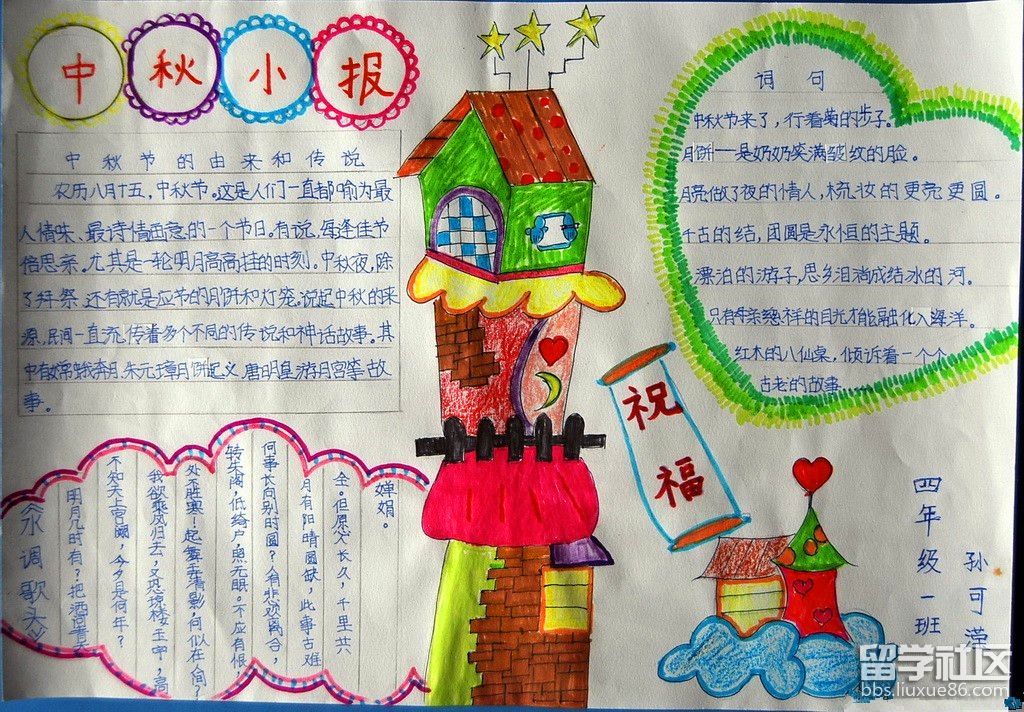 中秋小报
中秋节的由来和传说
农历八月十五，中秋节。这是人们一直都喻为最
人情味、最诗情画意的一个节日。有说，每逢佳节
倍思亲。尤其是一轮明月高高挂的时刻。中秋夜，除
了拜祭，还有就是应节的月饼和灯笼。说起中秋的来
源，民间一直流传着多个不同的传说和神话故事。其
中有嫦娥奔月、朱元璋月饼起义、唐明皇游月宫等故
事。
词句
中秋节来了，行着菊的步子。
月饼——是奶奶笑满皱纹的脸。
月亮做了夜的情人，梳妆的更亮更圆。
千古的结，团圆是永恒的主题。
漂泊的游子，思乡泪淌成结冰的河。
只有母亲慈祥的目光才能融化入海洋。
红木的八仙桌，倾诉着一个个
古老的故事
祝福
水调歌头
明月几时有？把酒问青天
不知天上宫阙，今夕是何年？
我欲乘风归去，又恐琼楼玉宇，高
处不胜寒！起舞弄清影，何似在人间？
转朱阁，低绮户，照无眠。不应有恨
何事长向别时圆？人有悲欢离合，
月有阳晴圆缺，此事古难
全。但愿人长久，千里共
婵娟。
四年级一班
孙可滢
留学社区
bbs.liuxue86.com